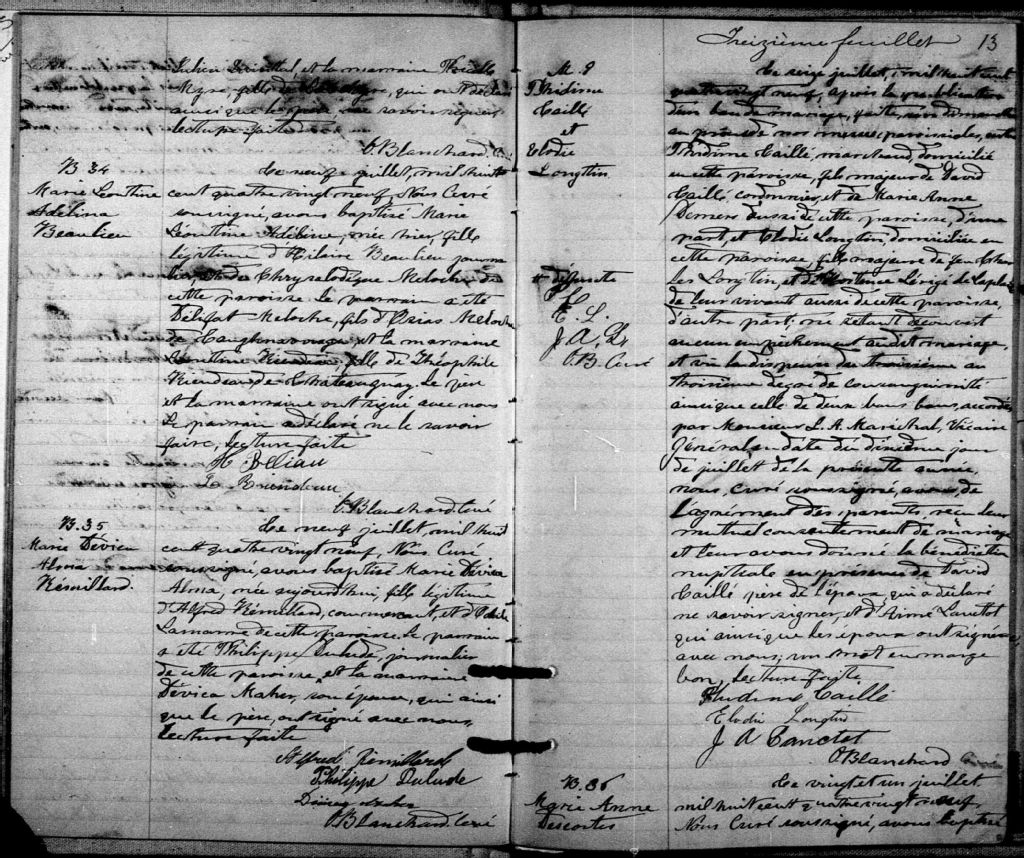 et la marraine
fille de qui ont déclaré
ainsi que le père, ne savoir signer
lecture faite
O. Blanchard
B 34
Marie Leontine
Adélina
Beaulieu
Le neuf juillet, mil huit
cent quatre vingt neuf, Nous Curé
soussigné, avons baptisé Marie
Léontine Adéline, née hier, fille
légitime d'Hilaire Beaulieu journa
lier, et de Chrysolodique Meloche de
cette paroisse le parrain a été
Meloche, fils d'Ozias Meloche
de Caughnawaga, et la marraine
Léontine fille de Théophile
de Chateauguay. Le père
et la marraine ont signé avec nous
Le parrain a déclaré ne le savoir
faire, lecture faite
H
O. Blanchard Curé
B. 35
Marie Dévica
Alma
Rémillard.
Le neuf juillet, mil huit
cent quatre vingt neuf, Nous Curé
soussigné, avons baptisé Marie Dévica
Alma, née aujourd'hui, fille légitime
d'Alfred Rémillard, commercant, et d'
Lamarre de cette paroisse. Le parrain
a été Philippe Dulude, journalier
de cette paroisse, et la marraine
Dévica Maher, son épouse, qui ainsi
que le père, ont signé avec nous,
Lecture faite
Alfred Rémillard
Philippe Dulude
O. Blanchard Curé
Treizième feuillet 13
M. 9
Thidime
Caillé
et
Elodie
Longtin
Le seize juillet, mil huit cent
quatre vingt neuf, après la publication
d'un ban de mariage, faite, un dimanche
au prône de nos messes paroissiales, entre
Thidime Caillé marchand, domicilié
en cette paroisse, fils majeur de David
Caillé, cordonnier, et de Marie Anne
Demers aussi de cette paroisse, d'une
part, et Elodie Longtin, domiciliée en
cette paroisse, fille majeure de feu Char
les Longtin, et de Hortence
de leur vivant aussi de cette paroisse,
d'autre part; ne s'étant découvert
aucun empêchement au dit mariage,
et vu la dispense du troisième au
troisième degré de consanguinité
ainsi que celle de deux bans, accordés
par Monsieur L. A. Maréchal, Vicaire
Général en date du dixième jour
de juillet de la présente année,
nous, Curé soussigné, avons, de
l'agrément des parents, reçu leur
mutuel consentement de mariage
et leur avons donné la bénédiction
nuptiale en présence de David
Caillé père de l'époux, qui a déclaré
ne savoir signer, et d'Aimé Lanctot
qui ainsi que les époux ont signé
avec nous; un mot en marge
bon, Lecture faite
+ défunte
E. L.
J. A. L.
O. B. Curé
Caillé
Elodie Longtin
J A Lanctot
O Blanchard Curé
B. 36
Marie Anne
Descortes
Le vingt et un juillet
mil huit cent quatre vingt neuf,
Nous Curé soussigné, avons baptisé